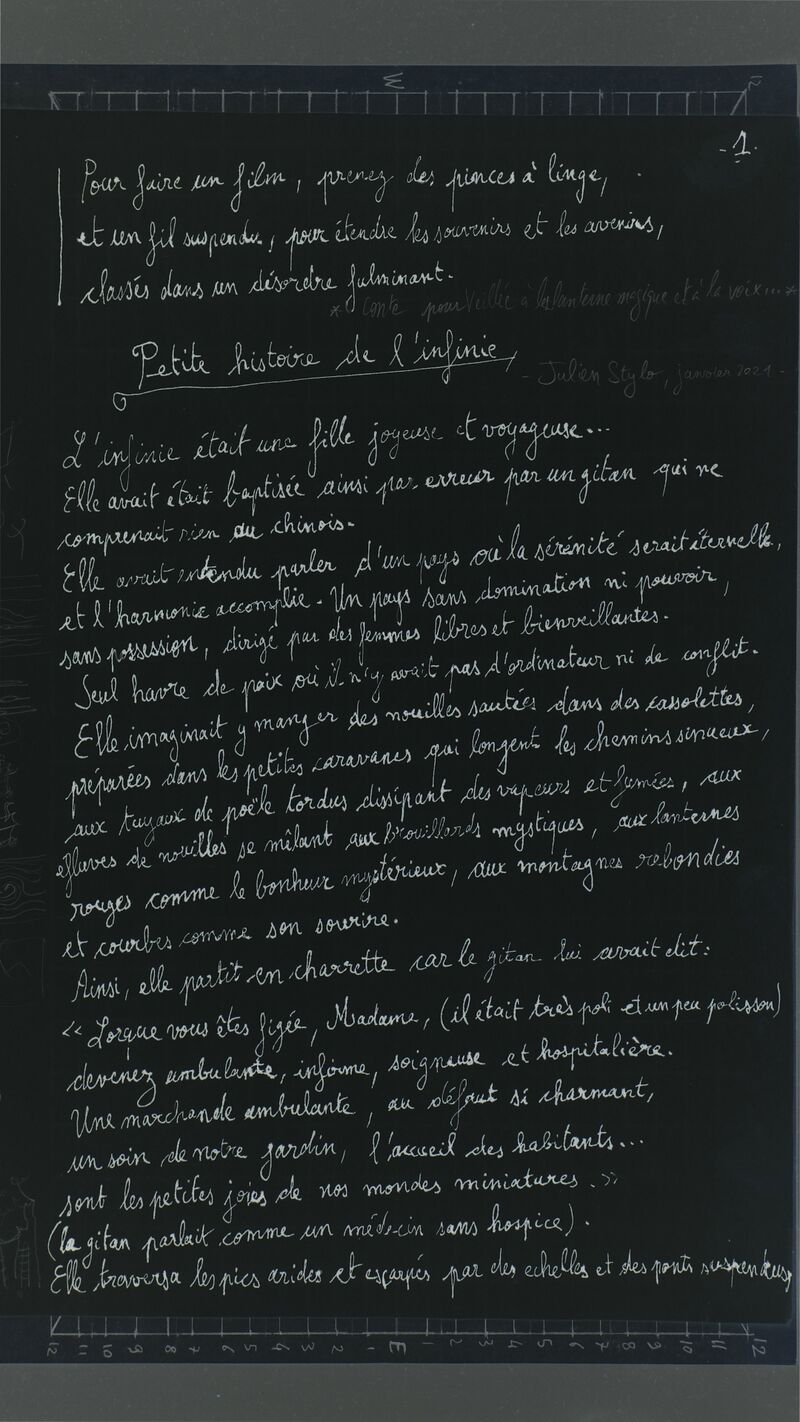 - 1 -
Pour faire un film, prenez des pinces à linge,
et un fil suspendu, pour étendre les souvenirs et les avenirs,
classés dans un désordre fulminant.
* Conte pour Veillée à la lanterne magique et à la voix... *
Petite histoire de l'infinie,
- Julien Stylo, janvier 2021 -
L'infinie était une fille joyeuse et voyageuse...
Elle avait était baptisée ainsi par erreur par un gitan qui ne
comprenait rien au chinois.
Elle avait entendu parler d'un pays où la sérénité serait éternelle,
et l'harmonie accomplie. Un pays sans domination ni pouvoir,
sans possession, dirigé par des femmes libres et bienveillantes.
Seul havre de paix où il n'y avait pas d'ordinateur ni de conflit.
Elle imaginait y manger des nouilles sautées dans des cassolettes,
préparées dans les petites caravanes qui longent les chemins sinueux,
aux tuyaux de poële tordus dissipant des vapeurs et fumées, aux
effluves de nouilles se mêlant aux brouillards mystiques, aux lanternes
rouges comme le bonheur mystérieux, aux montagnes rebondies
et courbes comme son sourire.
Ainsi, elle partit en charrette car le gitan lui avait dit:
« Lorque vous êtes figée, Madame, (il était très poli et un peu polisson)
devenez ambulante, infirme, soigneuse et hospitalière.
Une marchande ambulante, au défaut si charmant,
un soin de notre jardin, l'accueil des habitants...
sont les petites joies de nos mondes miniatures. »
(la gitan parlait comme un médecin sans hospice).
Elle traversa les pics arides et escarpés par des echelles et des ponts suspendus,
W
12 11 10 9 8 7 6 5 4 3 2 1 E 1 2 3 4 5 6 7 8 9 10 11 12